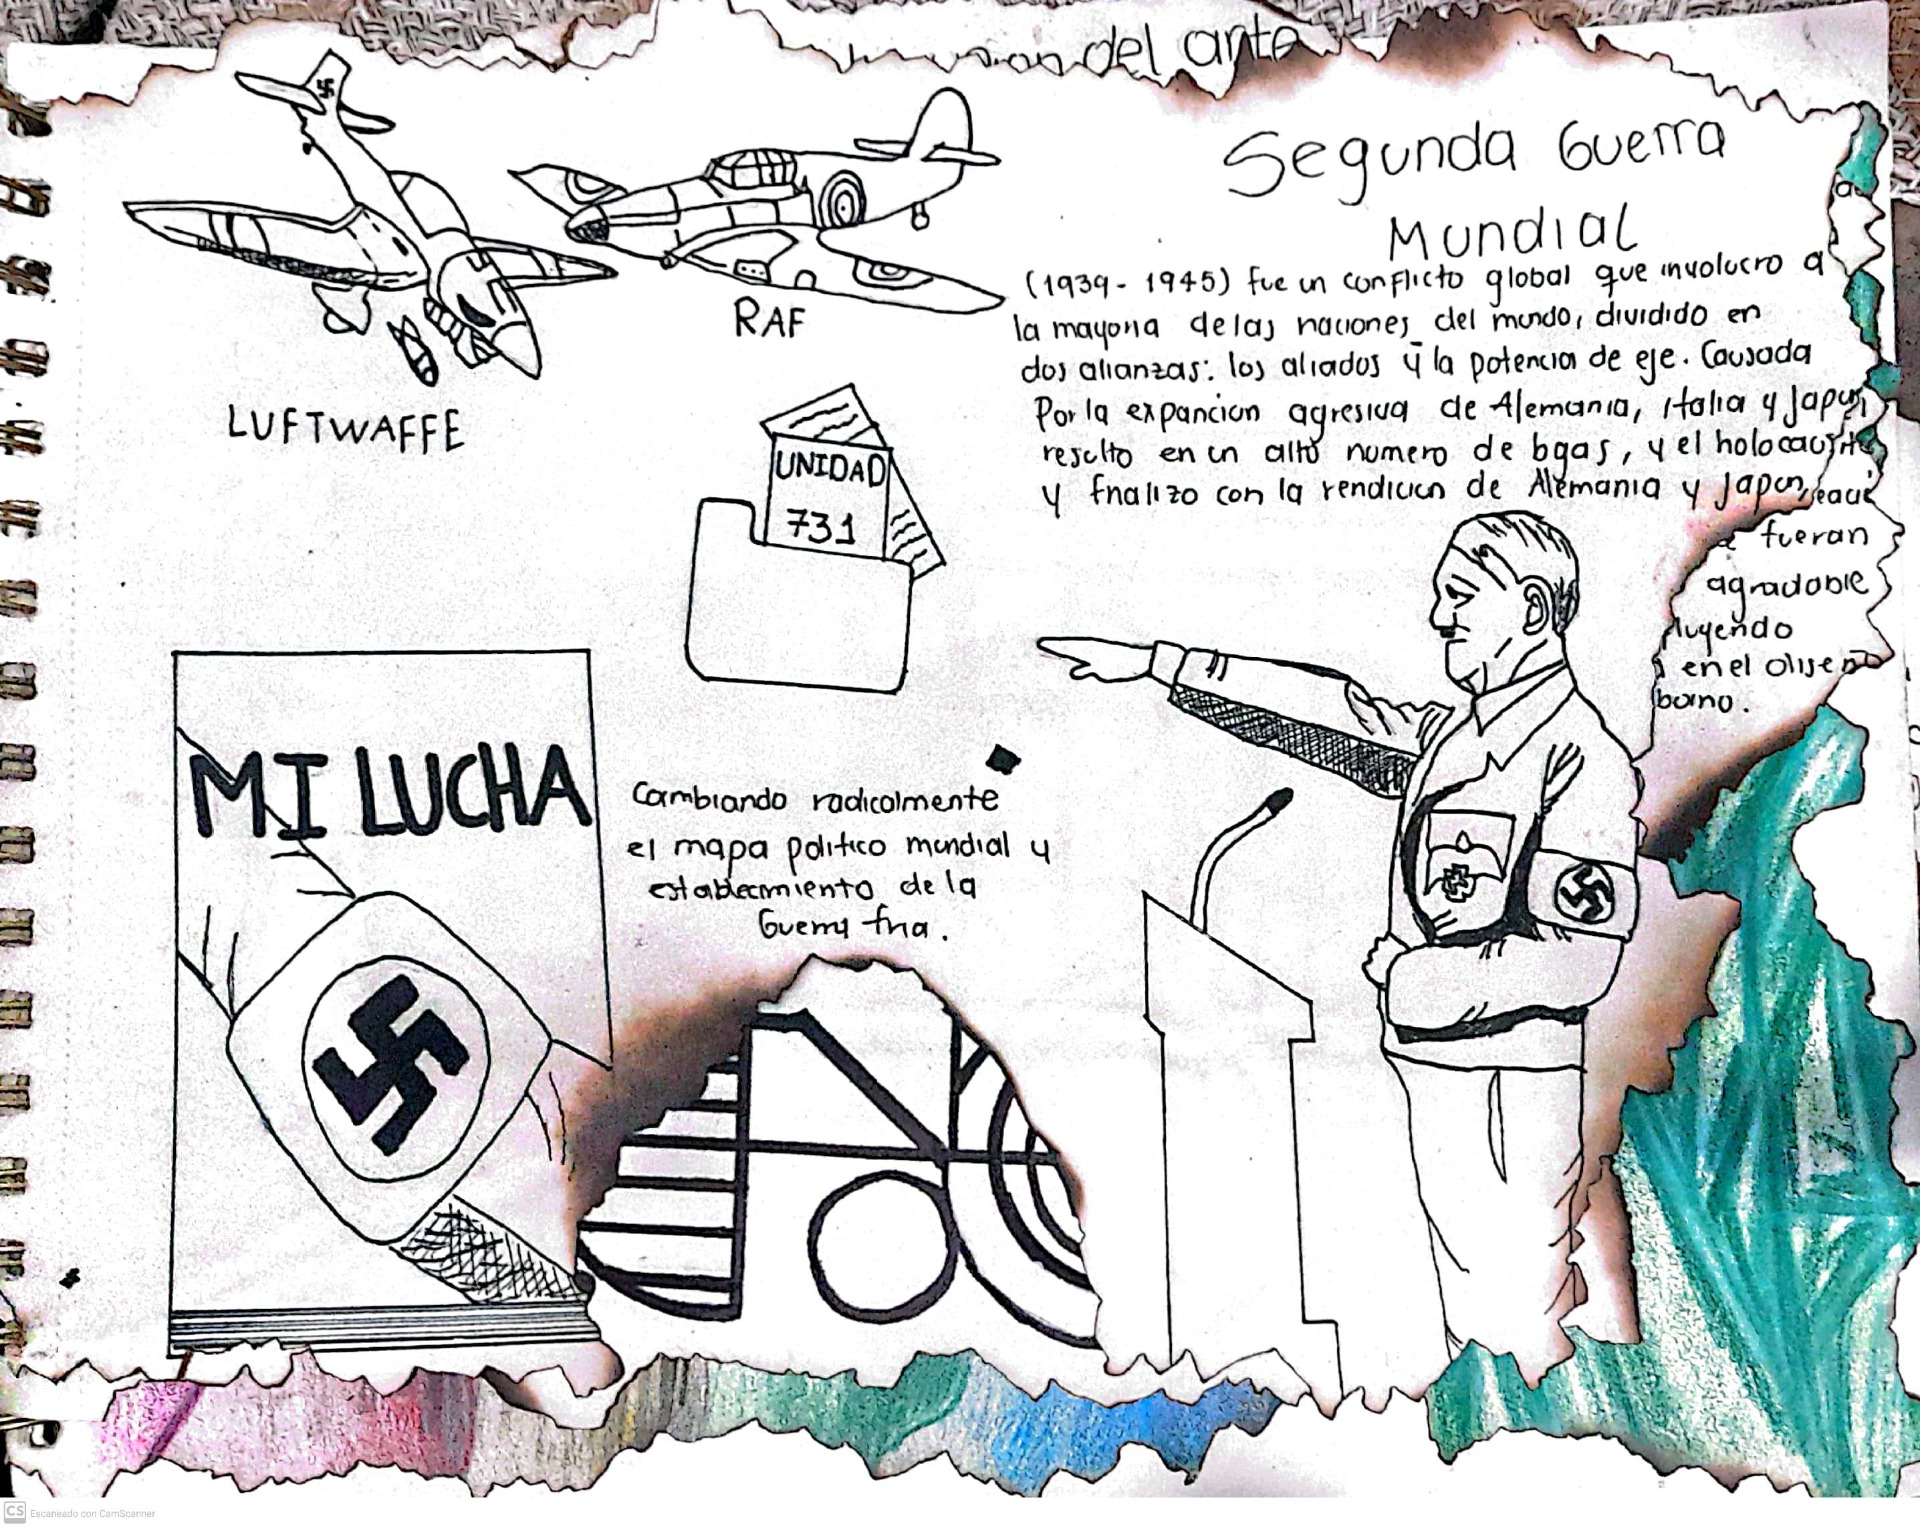 del arte
Segunda Guerra
Mundial
(1939 - 1945) fue un conflicto global que involucro a
la mayoria de las naciones del mundo, dividido en
dos alianzas: los aliados y la potencia de eje. Causada
Por la expancion agresiva de Alemania, Italia y Japon,
resulto en un alto numero de bgas, y el holocausto
y fnalizo con la rendicion de Alemania y Japon,
fueran
agradable
luyendo
en el diseño
bano.
LUFTWAFFE
RAF
UNIDAD
731
MI LUCHA
Cambiando radicalmente
el mapa politico mundial y
establecimiento de la
Guerra fria.
CS Escaneado con CamScanner